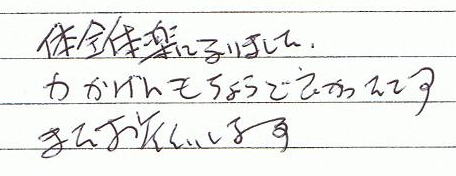 体全体楽になりました.
力かげんもちょうどよかったです
またお願いします